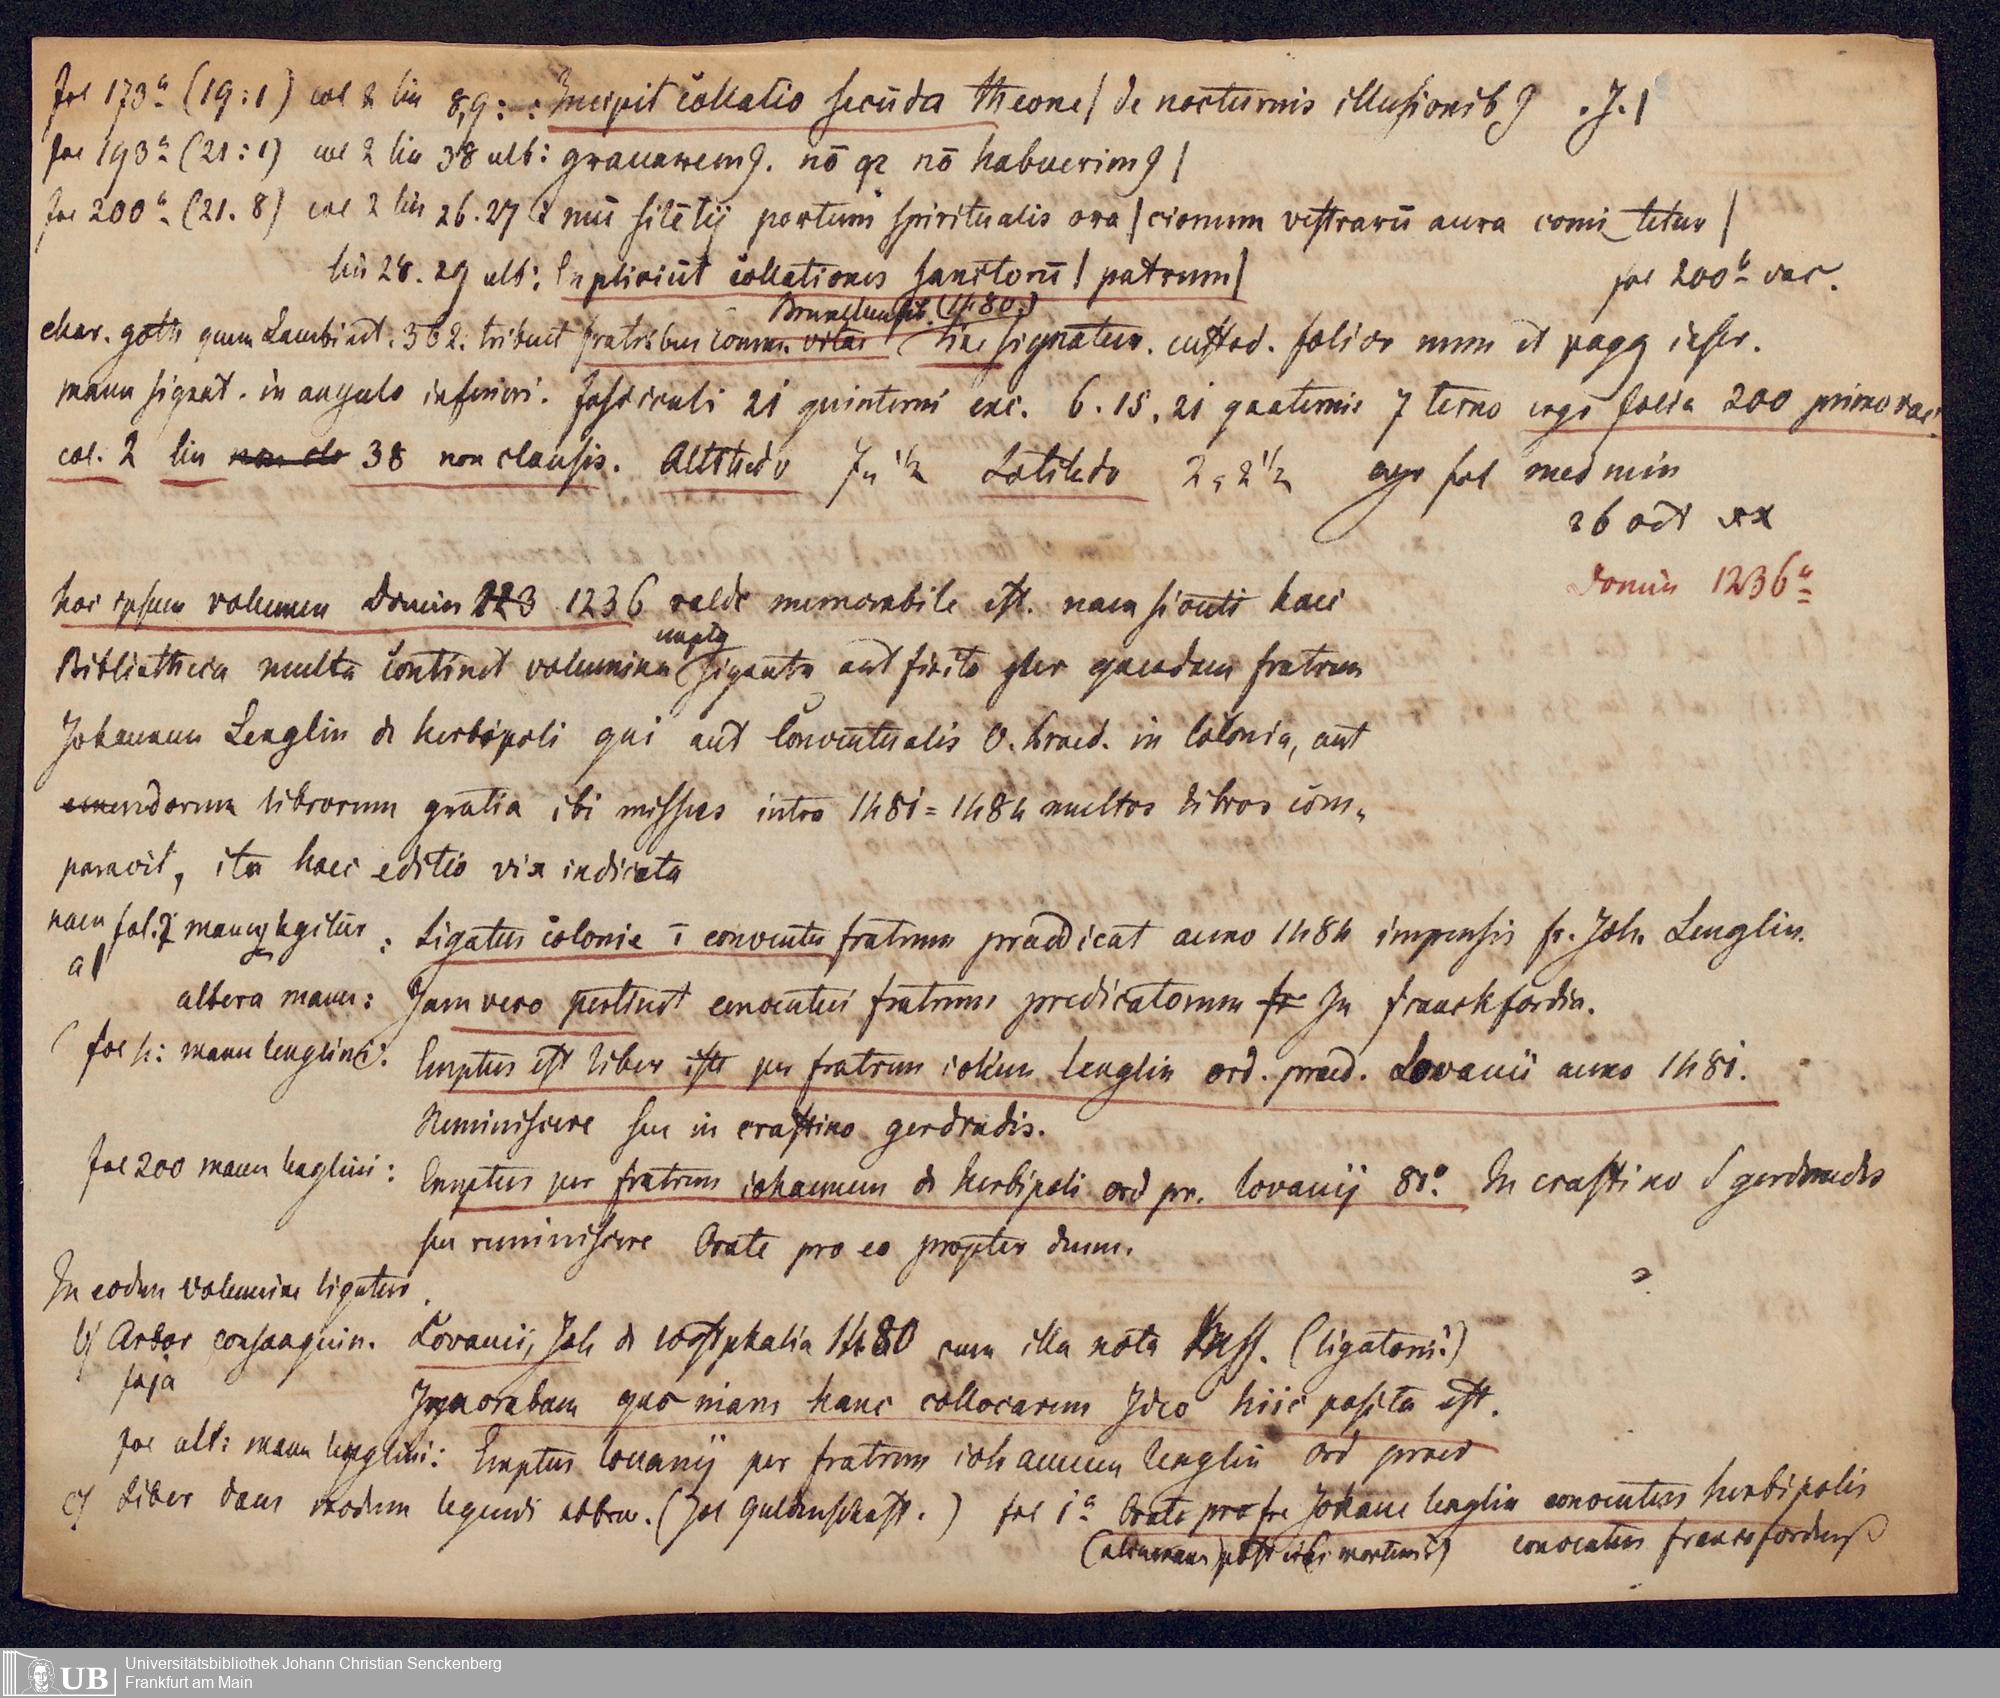 fol 173a (19:1) col 2 lin 8,9: : Incipit cōllatio secūda theone/ de nocturnis illusionibꝯ . J./
fol 193a (21:1) col 2 lin 38 ult: grauaremꝯ. nō qr nō habuerimꝯ /
fol 200a (21.8) col 2 lin 26.27 : silētij portum spiritualis ora/cionum vestrarū aura comitetur/
lin 28. 29 ult: Expliciūt cōllationes sanctorū/ patrum/ fol 200b vac.
Bruxellensib. (1480.)
char. goth quem Lambinet: 362. tribuit fratribus commu. vitae sine signatur. custod. folior num et pagg inscr.
manu signat. in angulo inferiori. fasciculi 21 quinterni exc. 6. 15. 21 quaternis 7 terno ergo folia 200 primo vac.
col. 2 lin 38 non clausis. Altitudo 7" 1/2 Latitudo 2, 2 1/2 ergo fol med min
26 oct xx
hoc ipsum volumen Domin 1236 valde memorabile est. nam sicuti haec Domin 1236a
empta
Bibliotheca multa continet volumina signata aut ficito per quendam fratrem
Johannem Lenglin de herbipoli qui aut Conventualis O. Praed. in Colonia, aut
emendorum librorum gratia ibi missus intra 1481 = 1484 multos libros com-
paravit, ita haec editio vix indicata
nam fol. manu legitur : Ligatus colonie ī conventu fratrum praedicat anno 1484 impensis fr. Joh. Lenglin.
a/
altera manu: Jam vero pertinet conventui fratrum predicatorum In franckfordia.
fol h: manu lenglini: Emptus est liber iste per fratrem iohem lenglin ord. praed. Lovanii anno 1481.
Reminiscere seu in crastino gerdrudis.
fol 200 manu lenglini: Emptus per fratrem iohannem de herbipoli ord pr. lovanij 81o. In crastino S gerdrudis
seu reminiscere Orate pro eo propter deum.
In eodem volumine ligatus.
b/ Arbor consanguin. Lovanii, Joh de westphalia 1480 cum illa nota Mss. (ligatoris?)
Ignorabam quo nam hanc collocarem Ideo hiic posita est.
fol ult: manu lenglini: Emptus louanij per fratrem iohannem lenglin ord praed
c/ Liber dans modum legendi abbrev. (Joh Guldenschaff.) fol 1a Orate pro fre Johane lenglin conventus herbipolis
post eius mortem?) conventus francofordens
UB Universitätsbibliothek Johann Christian Senckenberg
Frankfurt am Main